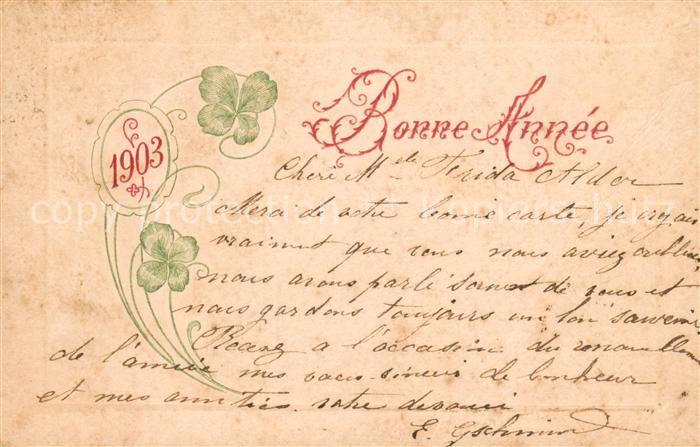 Bonne Année
1903
Cheré Mlle Frida Alder
Merci de votre bonne carte, je croyais
vraiment que vous nous aviez oubliée
nous avons parlé souvent de vous et
nous gardons toujours un bon souvenir
Recevez a l'occasion du renouvellement
de l'année mes vœux sincères de bonheur
et mes amitiés votre dévouée
E.